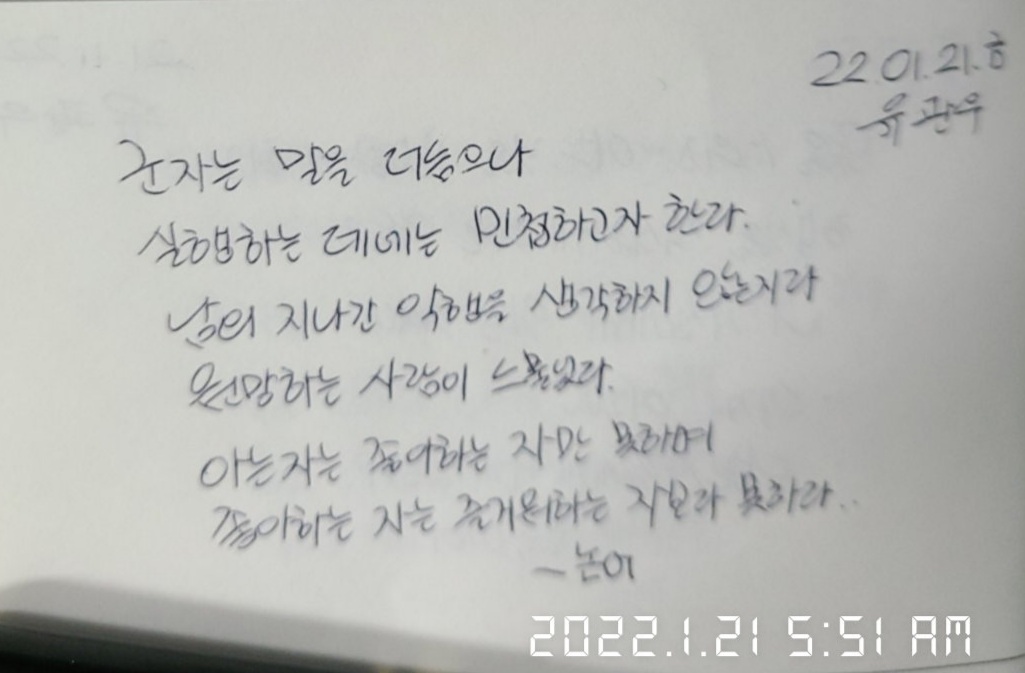 22.01.21.ㅎ
유관우
군자는 말을 더듬으나
실행하는 데에는 민첩하고자 한다.
남의 지나간 악행을 생각하지 않는지라
원망하는 사람이 드물었다.
아는자는 좋아하는 자만 못하며
좋아하는 자는 즐거워하는 자보다 못하다..
~논어
2022.1.21 5:51 AM